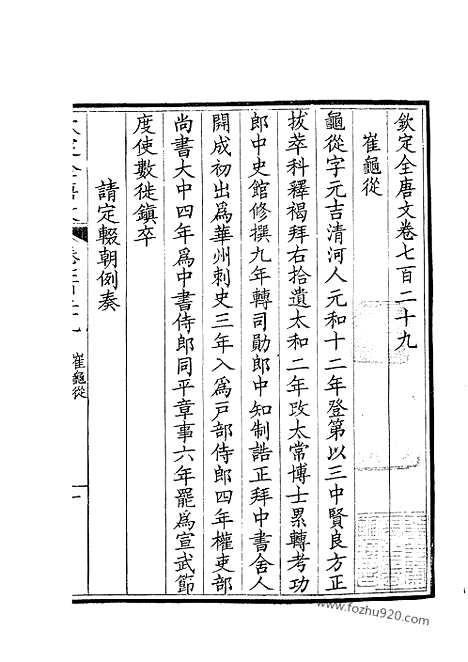 欽定全唐文卷七百二十九
崔龜從
龜從字元吉清河人元和十二年登第以三中賢良方正
拔萃科釋褐拜右拾遺太和二年改太常博士累轉考功
郎中史館修撰九年轉司勛郎中知制誥正拜中書舍人
開成初出為華州刺史三年入為戶部侍郎四年權吏部
尚書大中四年為中書侍郎同平章事六年罷為宣武節
度使數徙鎮卒
請定輟朝例奏
崔龜從
一
www.fozhu920.com